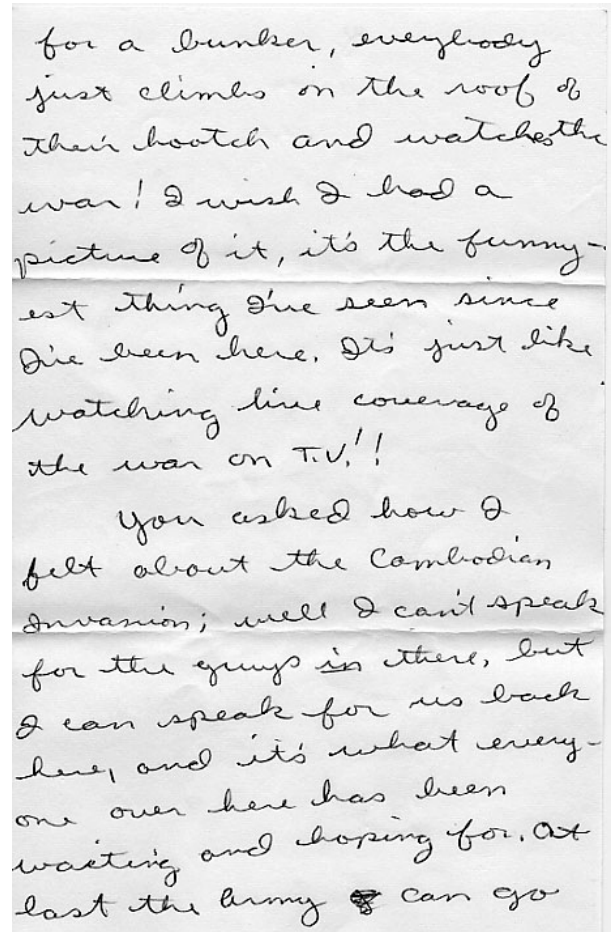 for a bunker, everybody
just climbs on the roof of
their hootch and watches the
war! I wish I had a
picture of it, it's the funny-
est thing I've seen since
I've been here. It's just like
watching live coverage of
the war on T.V.!!
You asked how I
felt about the Cambodian
Invasion; well I can't speak
for the guys in there, but
I can speak for us back
here, and it's what every-
one over here has been
waiting and hoping for. At
last the Army can go